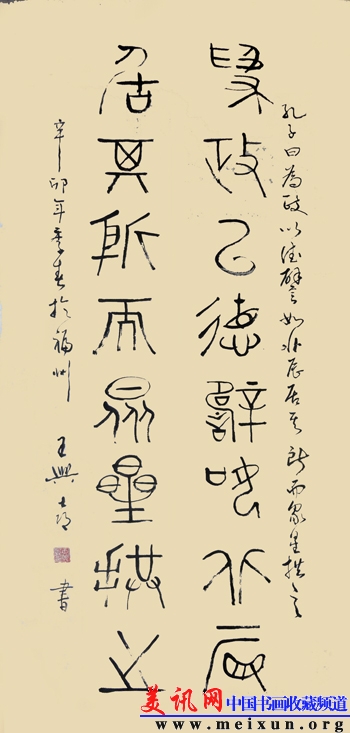 孔子曰為政以德譬如北辰居其所而眾星拱之
為政以德譬如北辰
居其所而眾星拱之
辛卯年季春於福州 王興 書
美讯网 中国书画收藏频道
www.meixun.org